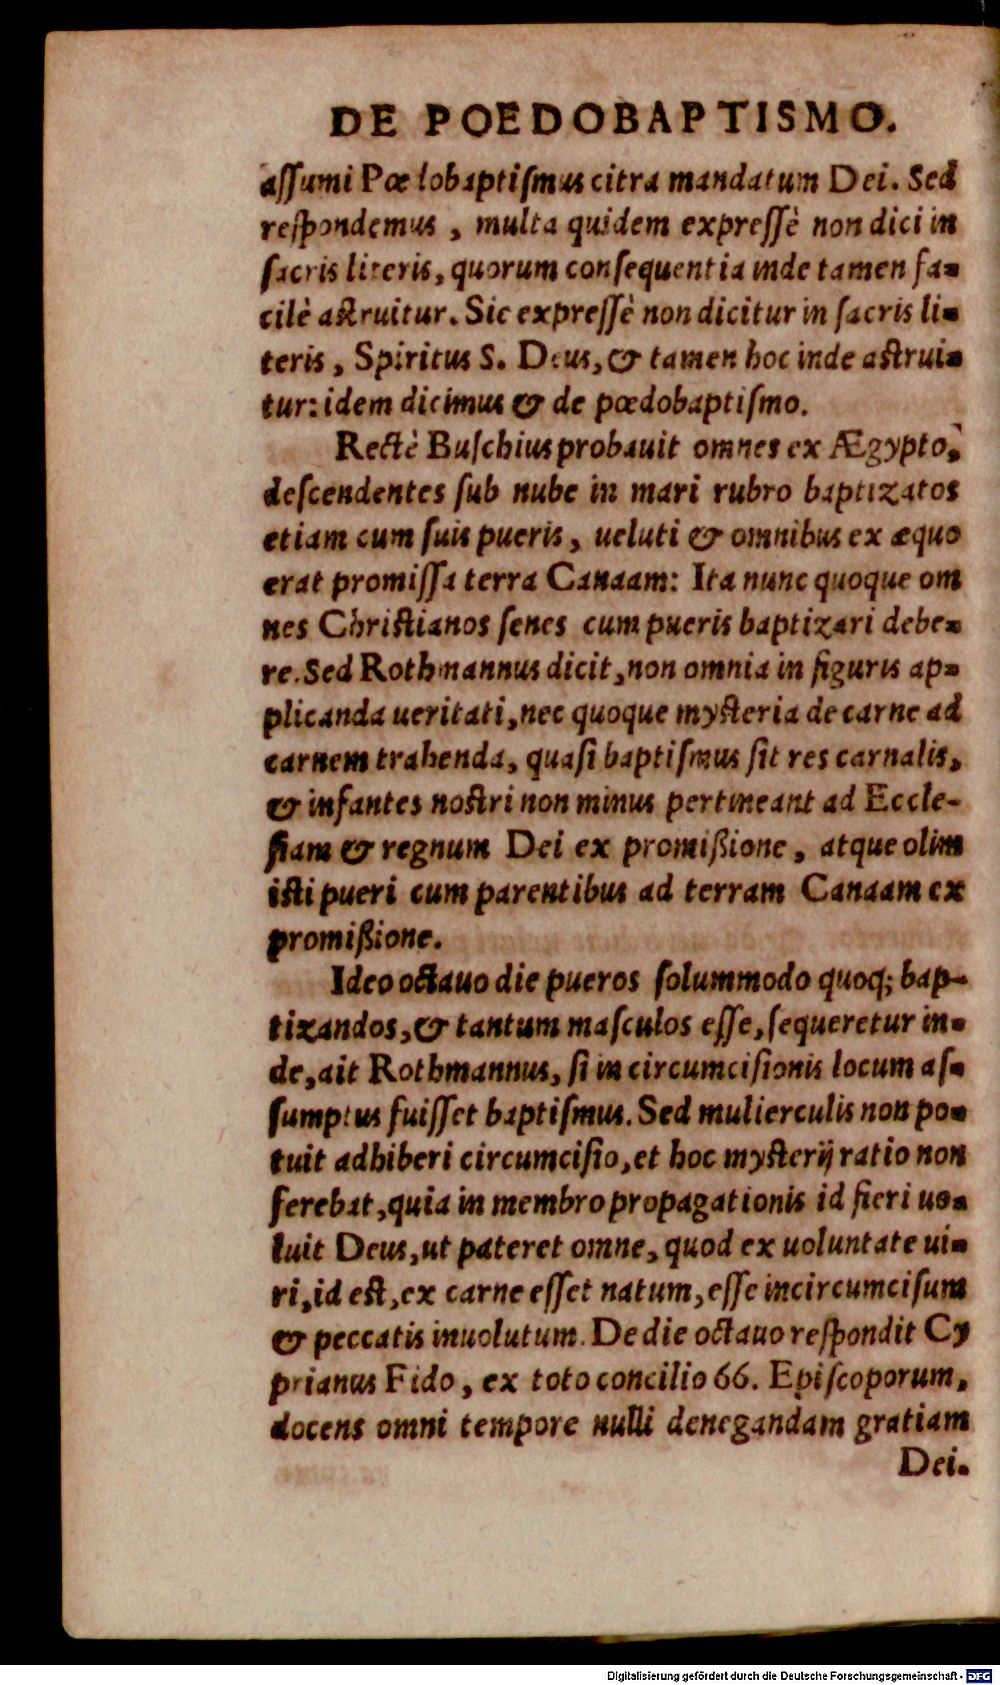 DE POEDOBAPTISMO.
aſſumi Pœdobaptiſmus citra mandatum Dei. Sed
reſpondemus, multa quidem expreſſè non dici in
ſacris literis, quorum conſequentia inde tamen fa-
cilè aſtruitur. Sic expreſſè non dicitur in ſacris li-
teris, Spiritus S. Deus, & tamen hoc inde aſtrui-
tur: idem dicimus & de pœdobaptiſmo.
Rectè Buſchius probauit omnes ex Ægypto,
deſcendentes ſub nube in mari rubro baptizatos
etiam cum ſuis pueris, ueluti & omnibus ex æquo
erat promiſſa terra Canaam: Ita nunc quoque om
nes Chriſtianos ſenes cum pueris baptizari debe-
re. Sed Rothmannus dicit, non omnia in figuris ap-
plicanda ueritati, nec quoque myſteria de carne ad
carnem trahenda, quaſi baptiſmus ſit res carnalis,
& infantes noſtri non minus pertineant ad Eccle-
ſiam & regnum Dei ex promißione, atque olim
iſti pueri cum parentibus ad terram Canaam ex
promißione.
Ideo octauo die pueros ſolummodo quoq; bap-
tizandos, & tantum maſculos eſſe, ſequeretur in-
de, ait Rothmannus, ſi in circumciſionis locum aſ-
ſumptus fuiſſet baptiſmus. Sed mulierculis non po-
tuit adhiberi circumciſio, et hoc myſterij ratio non
ferebat, quia in membro propagationis id fieri uo-
luit Deus, ut pateret omne, quod ex uoluntate ui-
ri, id eſt, ex carne eſſet natum, eſſe incircumciſum
& peccatis inuolutum. De die octauo reſpondit Cy
prianus Fido, ex toto concilio 66. Epiſcoporum,
docens omni tempore nulli denegandam gratiam
Dei.
Digitalisierung gefördert durch die Deutsche Forschungsgemeinschaft - DFG